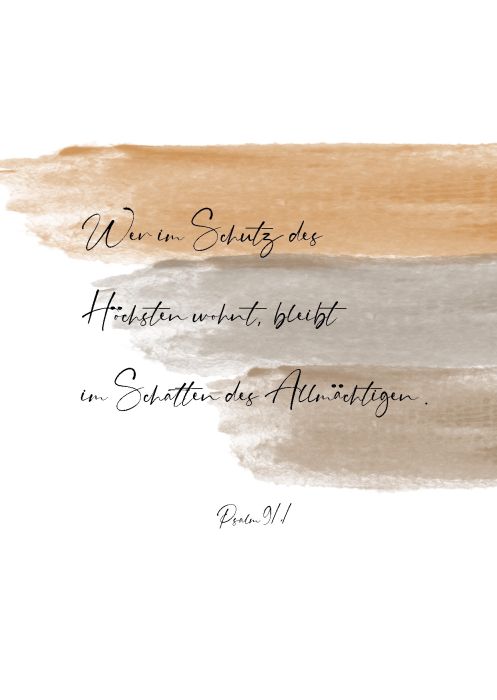 Wer im Schutz des
Höchsten wohnt, bleibt
im Schatten des Allmächtigen.
Psalm 91,1